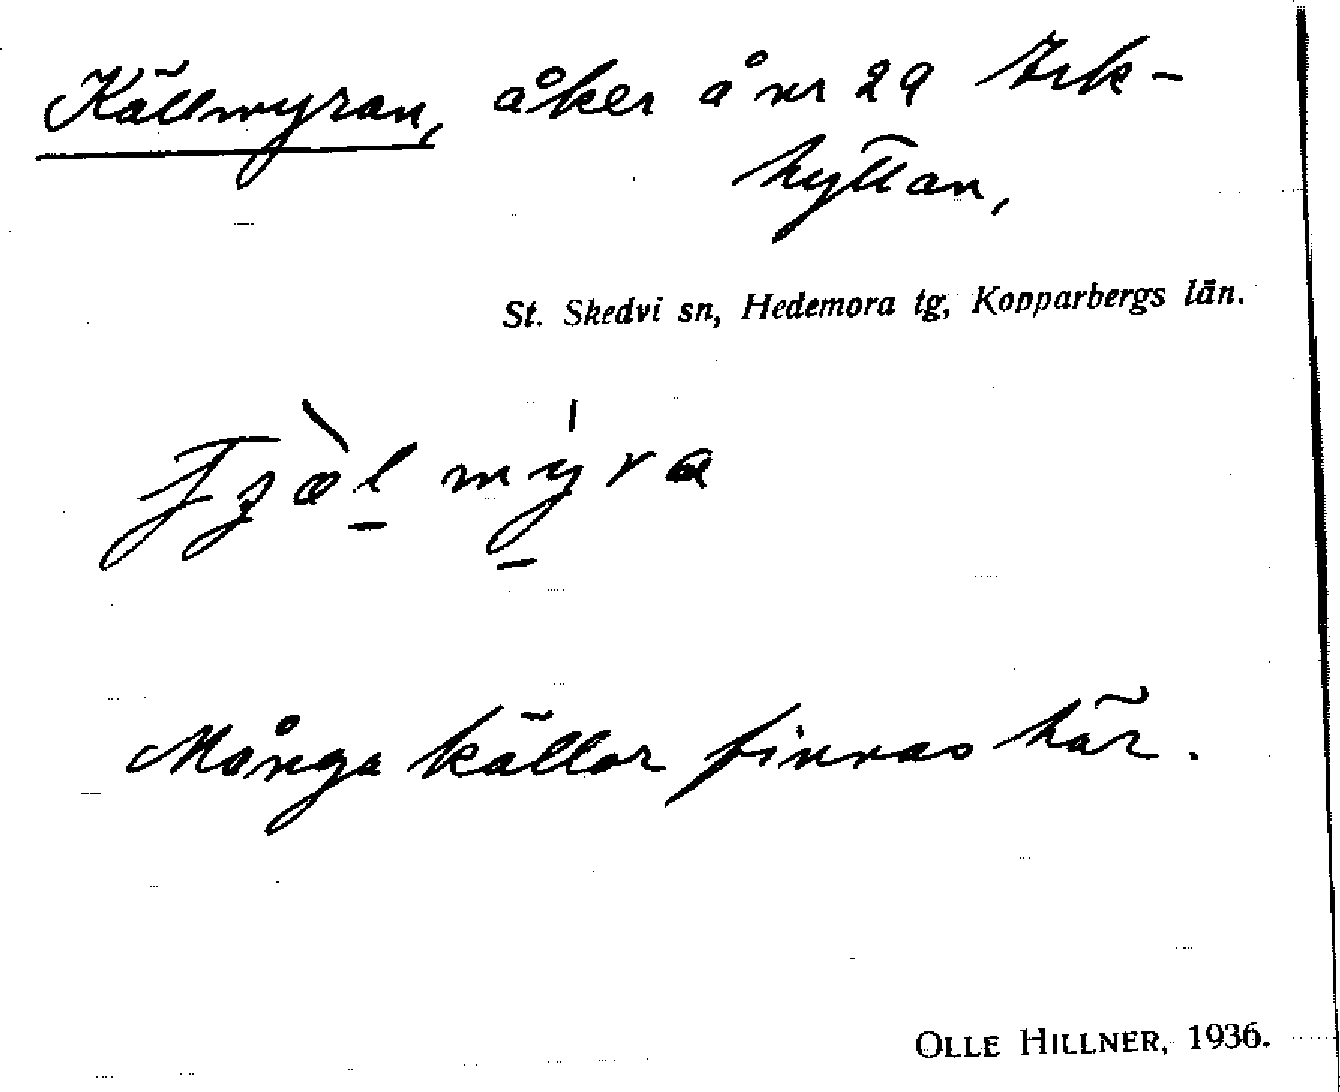 Källmyran, åker å nr 29 Irk-
hyttan,
St. Skedvi sn, Hedemora tg, Kopparbergs län.
Många källor finnas här.
OLLE HILLNER, 1936.